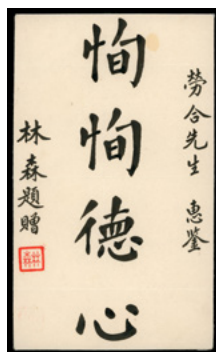 勞合先生 惠鑒
恂恂德心
林森題贈